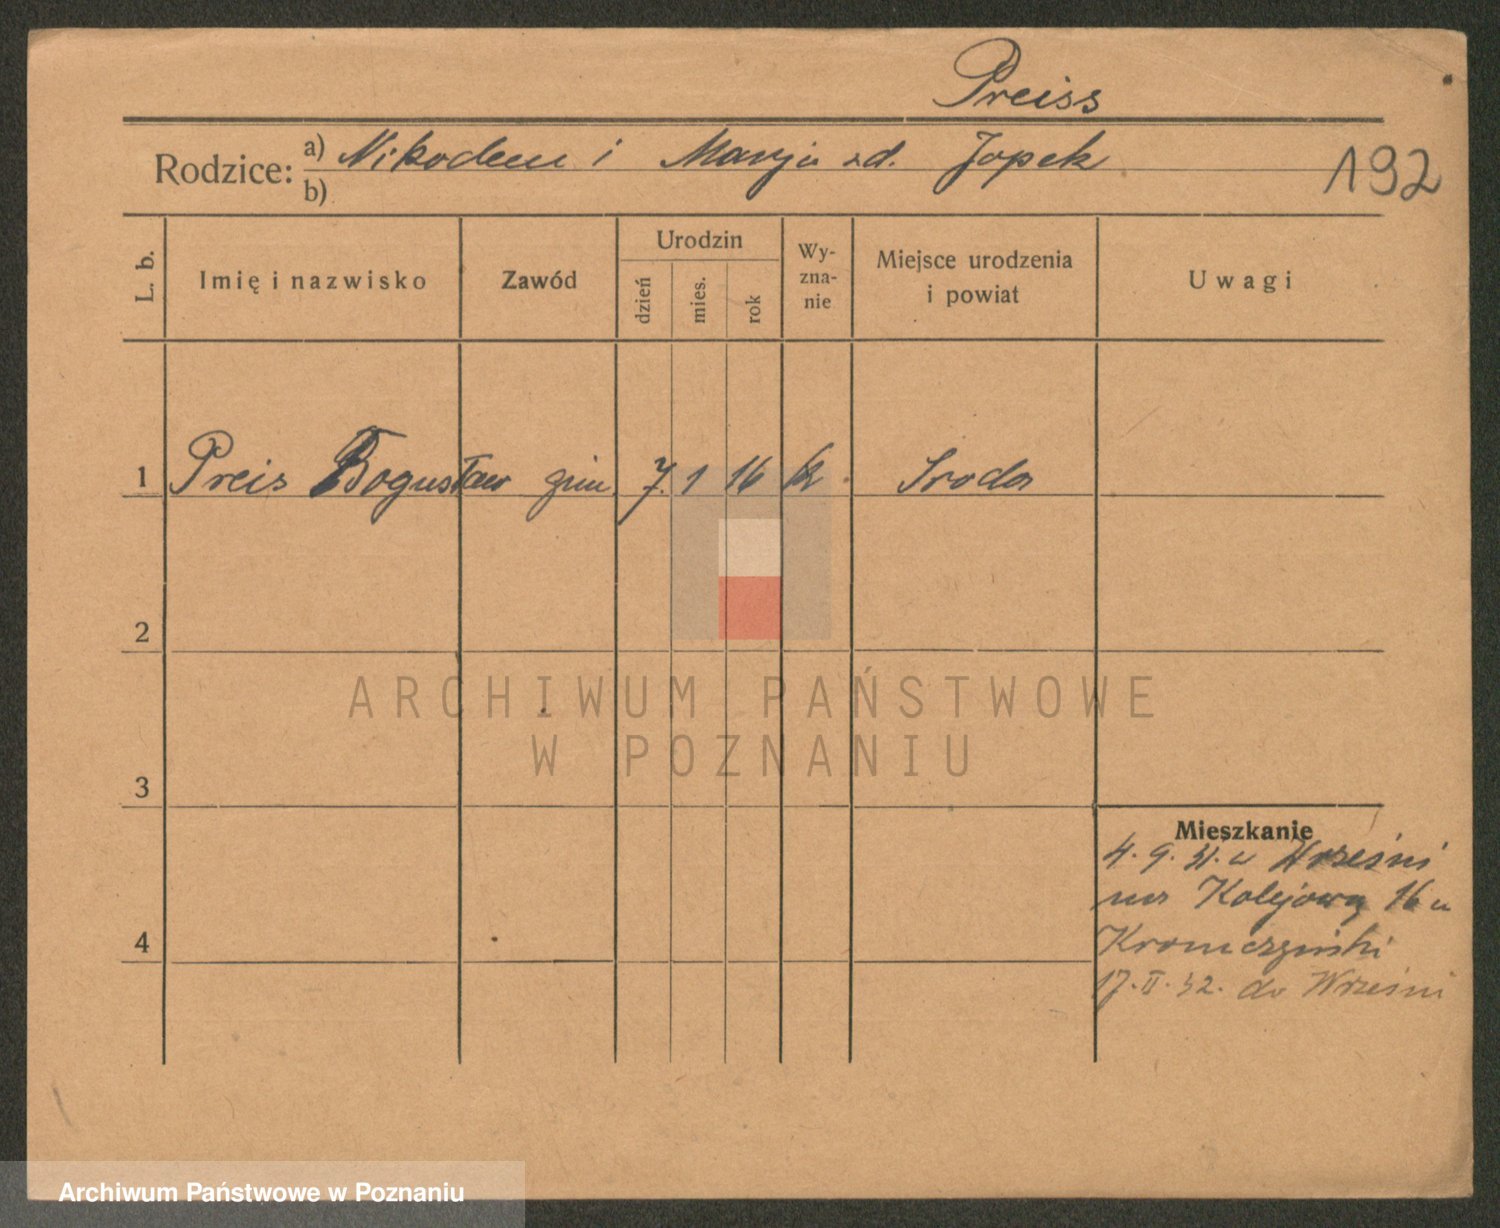 Preiss
Rodzice: a) Nikodem i Marja zd. Jopek
b)
192
L. b.
Imię i nazwisko
Zawód
Urodzin
dzień
mies.
rok
Wy-
zna-
nie
Miejsce urodzenia
i powiat
Uwagi
1 Preis Bogusław gim. 7. 1 16 k. Środa
2
3
4
Mieszkanie
4. 9. 31. z Wrześni
na Kolejową 16 u
17. II. 32. do Wrześni
ARCHIWUM PAŃSTWOWE
W POZNANIU
Archiwum Państwowe w Poznaniu